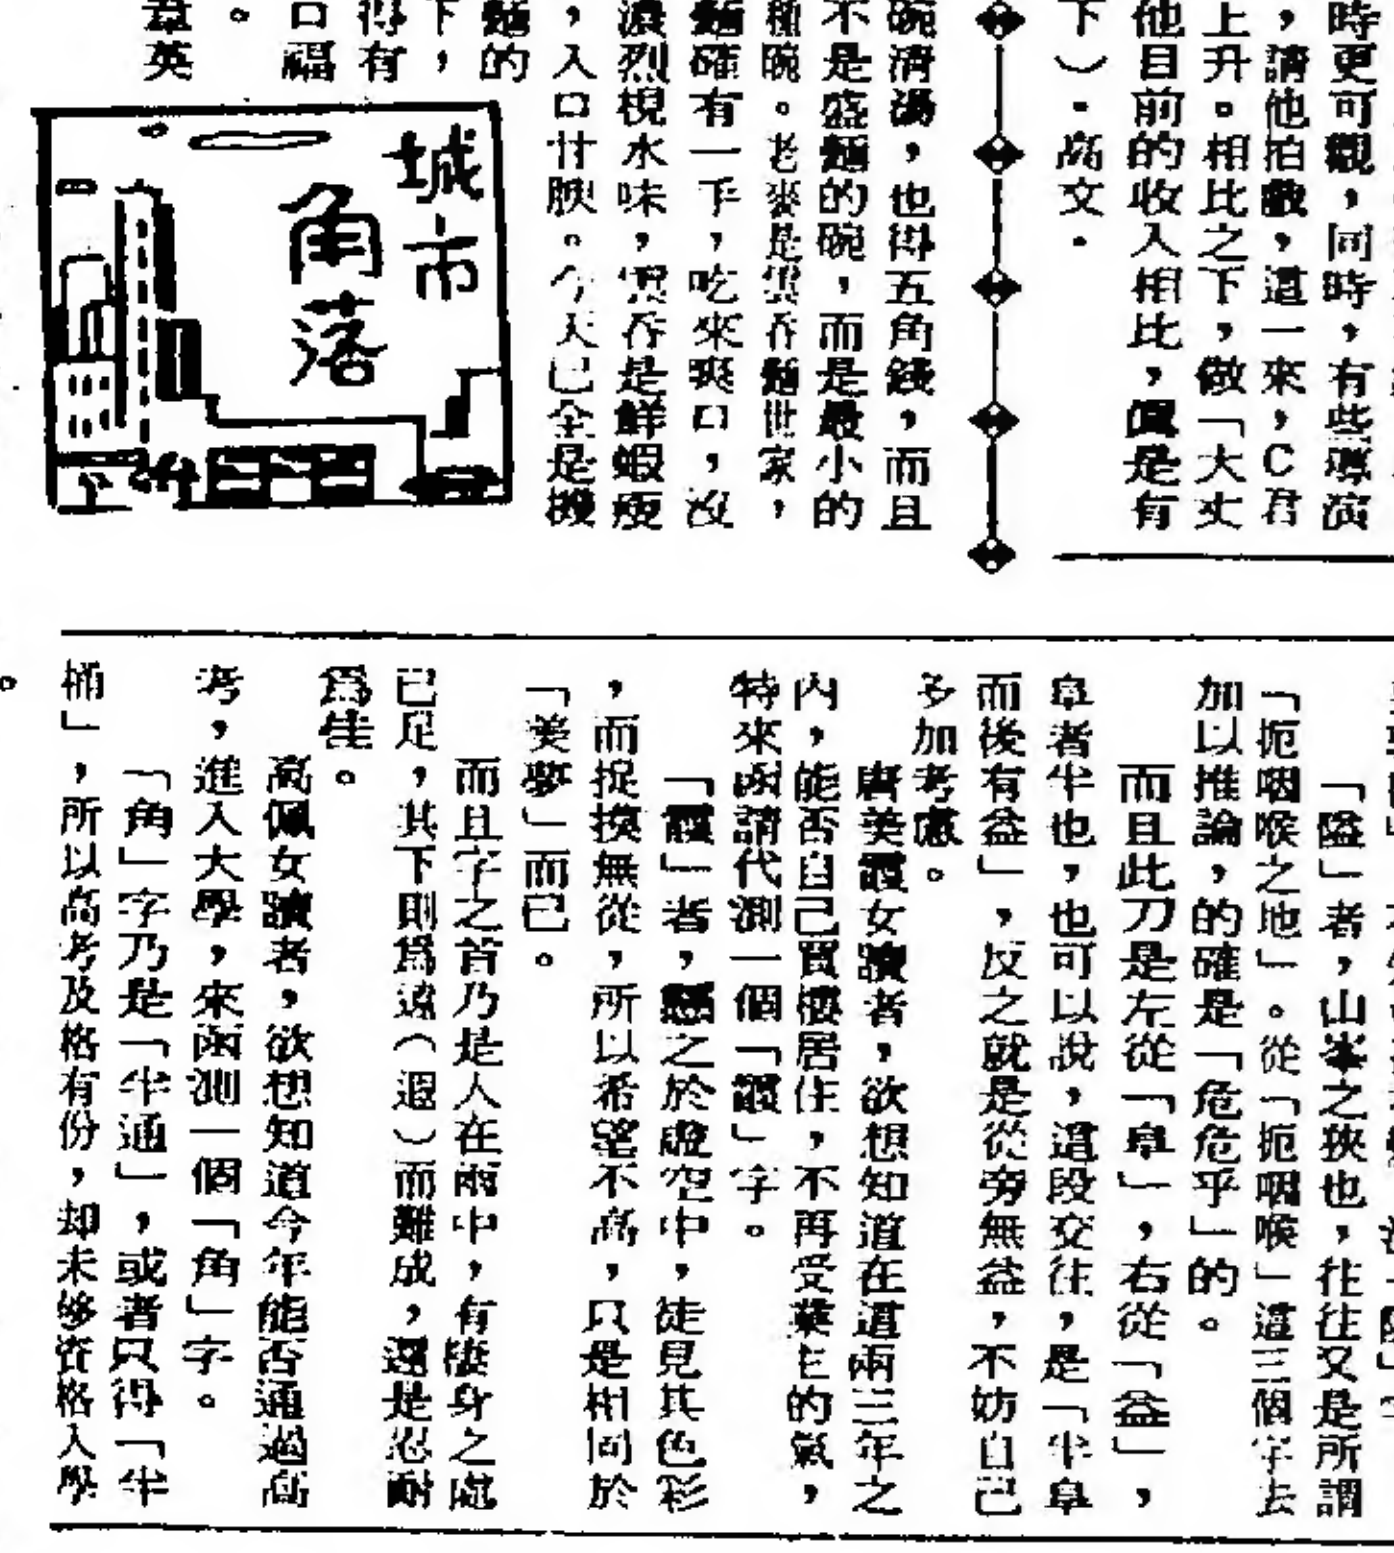 時更可觀，同時，有些導演
，請他拍戲，這一來，C君
上升。相比之下，做「大丈
他目前的收入相比，佩是有
下）・高文・
碗清湯，也得五角錢，而且
不是盛麵的碗，而是最小的
種碗。老麥是雲吞麵世家，
麵確有一手，吃來爽口，沒
濃烈梘水味，雲吞是鮮蝦瘦
，入口甘腴。今天已全是機
麵的
下，
得有
口福
。
韋英
城市
角落
「隘」者，山峯之狹也，往往又是所謂
「扼咽喉之地」。從「扼咽喉」這三個字去
加以推論，的確是「危危乎」的。
而且此刀是左從「阜」，右從「益」，
阜者半也，也可以說，這段交往，是「半阜
而後有益」，反之就是從旁無益，不妨自己
多加考慮。
唐美霞女讀者，欲想知道在這兩三年之
內，能否自己買樓居住，不再受業主的氣，
特來函請代測一個「霞」字。
「霞」者，懸之於虛空中，徒見其色彩
，而捉摸無從，所以希望不高，只是相同於
「美夢」而已。
而且字之首乃是人在雨中，有棲身之處
已足，其下則爲遠（遐）而難成，還是忍耐
爲佳。
高佩女讀者，欲想知道今年能否通過高
考，進入大學，來函測一個「角」字。
「角」字乃是「半通」，或者只得「半
桶」，所以高考及格有份，却未够資格入學
。